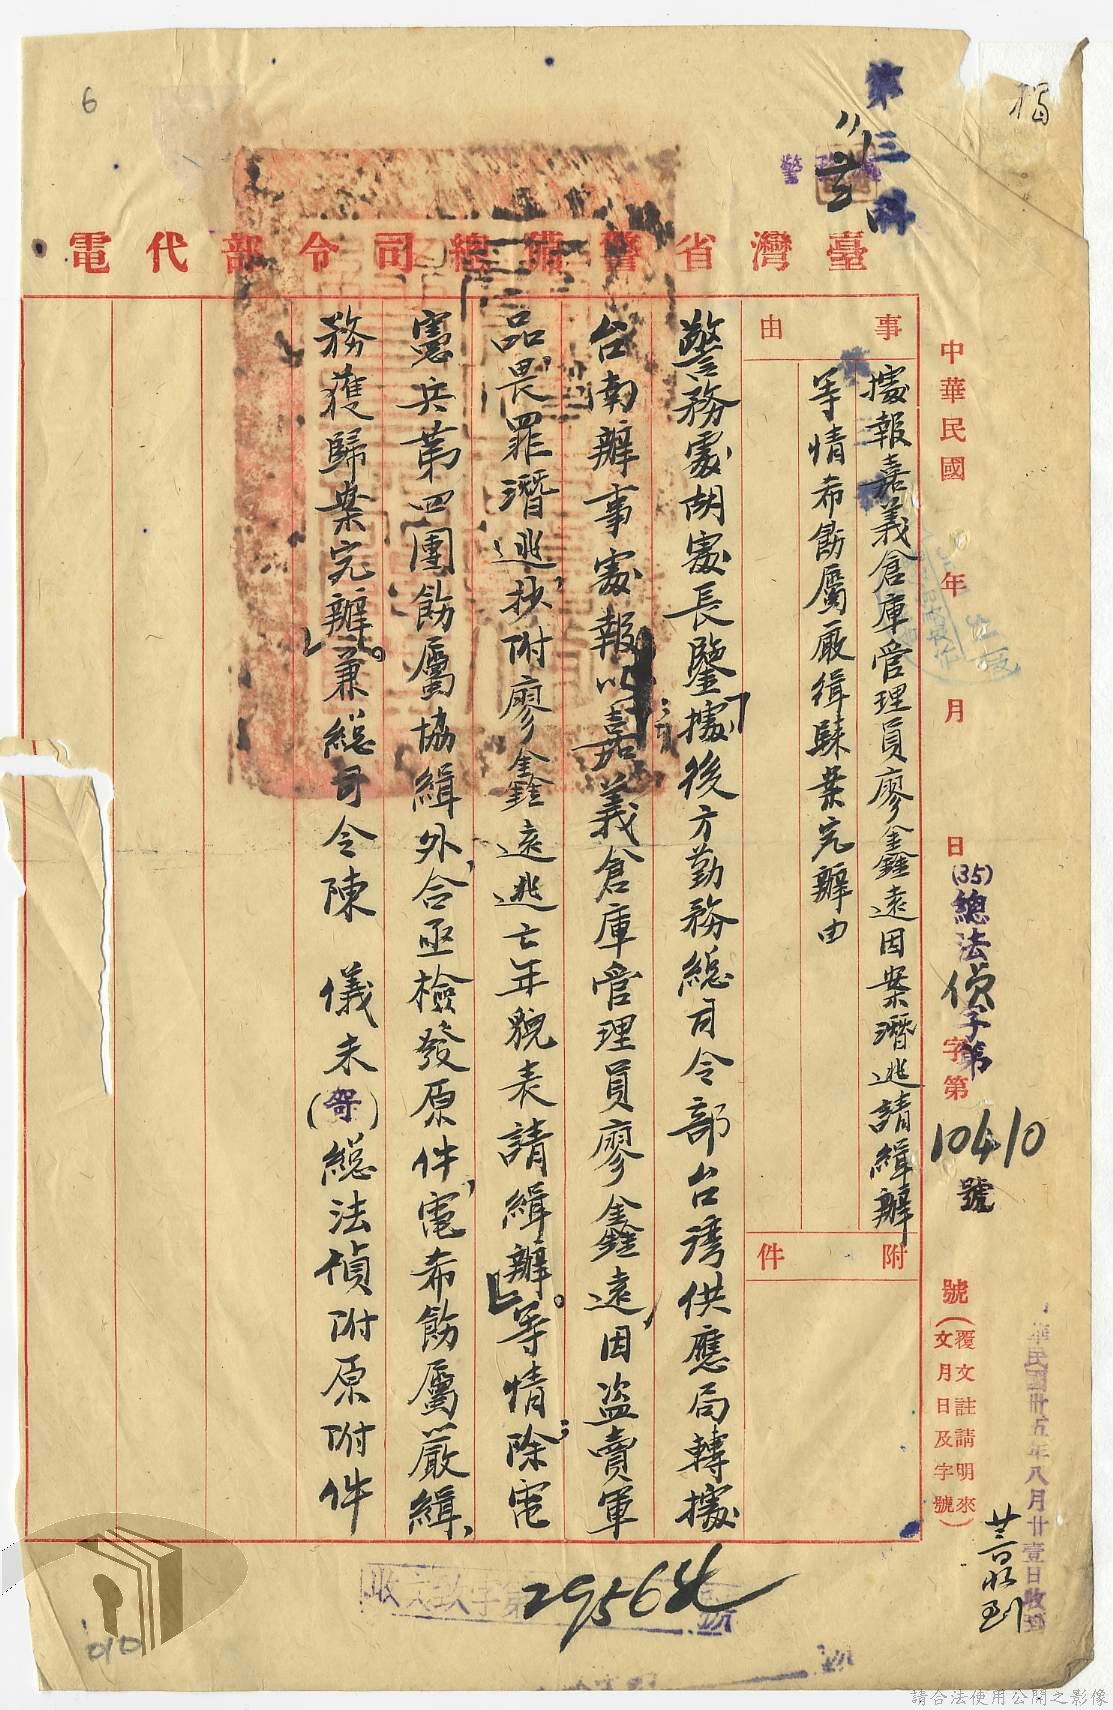 6
第三科
臺灣省警備總司令部代電
中華民國 年 月 日
(35)總法偵子第10410號
字第 號
(覆文註請明來文月日及字號)
事由
據報嘉義倉庫管理員廖鑫遠因案潛逃請緝辦
等情希飭屬嚴緝歸案究辦由
附件
警務處胡處長鑒「據後方勤務總司令部台灣供應局轉據
台南辦事處報以嘉義倉庫管理員廖鑫遠,因盜賣軍
品畏罪潛逃,抄附廖鑫遠逃亡年貌表請緝辦」等情。除電
憲兵第四團飭屬協緝外,合亟檢發原件,電希飭屬嚴緝,
務獲歸案究辦。兼總司令陳 儀未(哿)總法偵附原附件
華民國卅五年八月廿壹日收
收文 字第29564號
請合法使用公開之影像